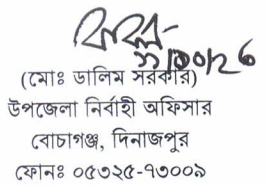 (মোঃ ডালিম সরকার)
উপজেলা নির্বাহী অফিসার
বোচাগঞ্জ, দিনাজপুর
ফোনঃ ০৫৩২৫-৭৩০০৯